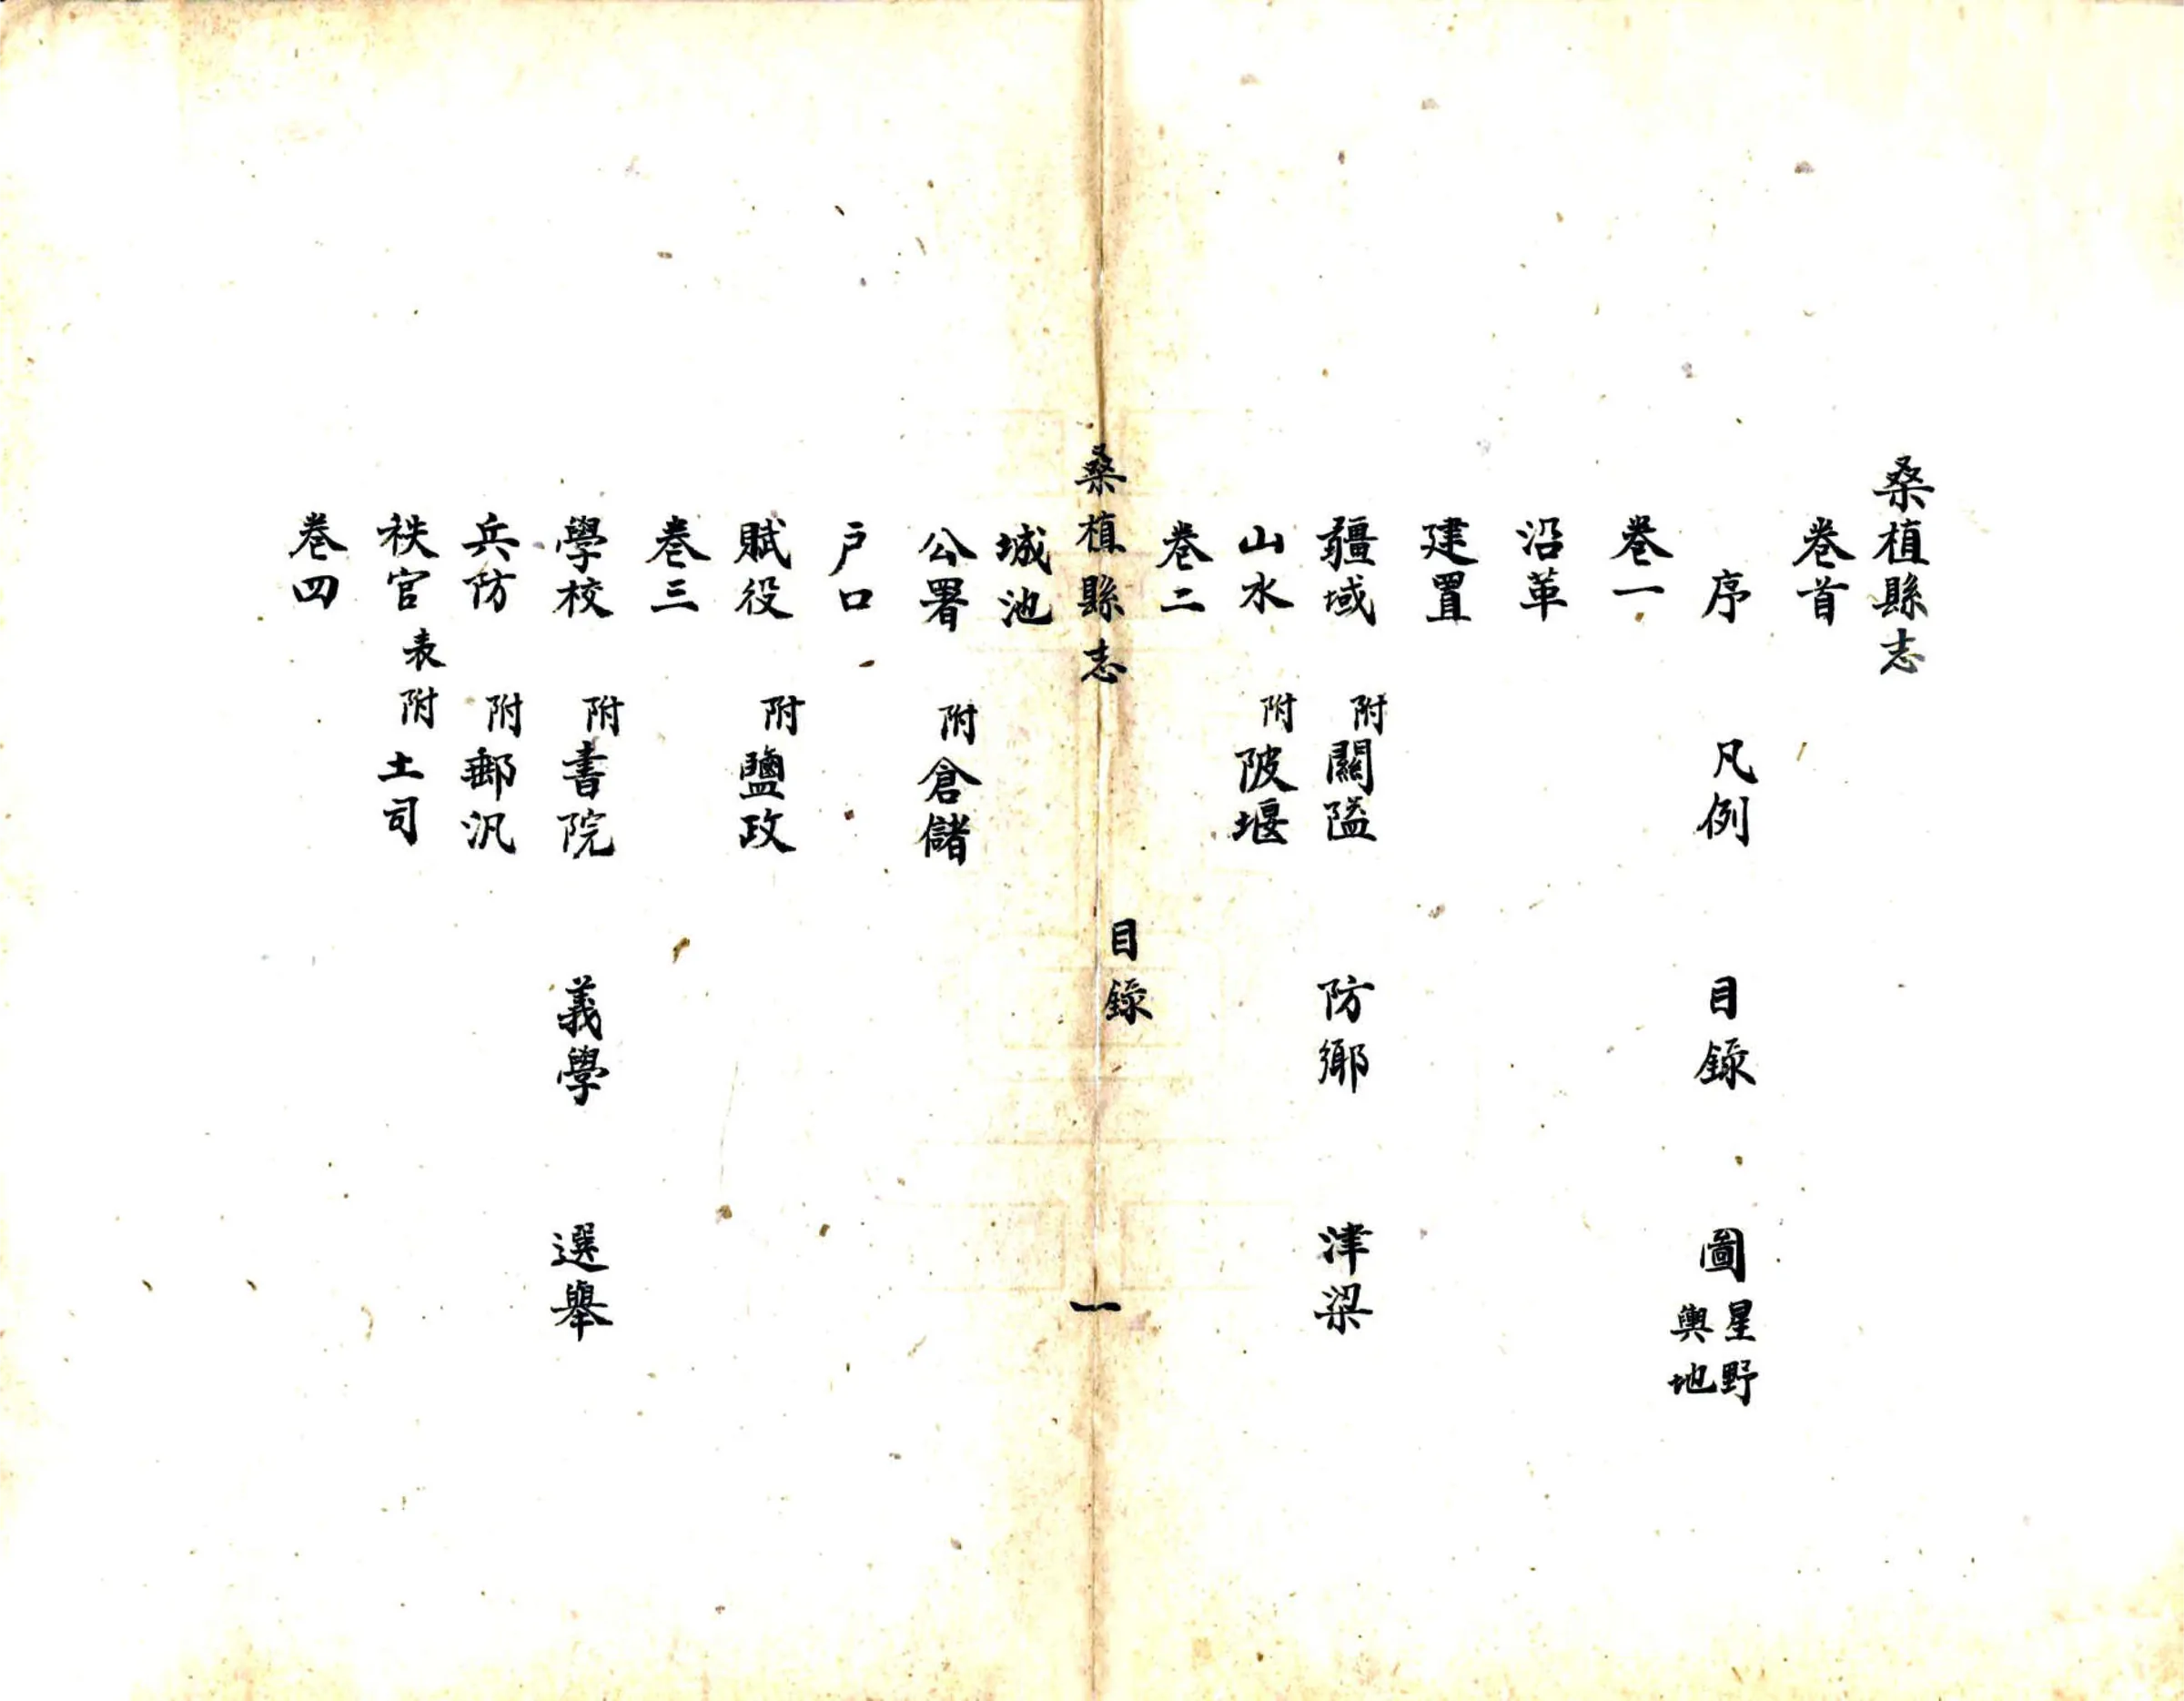 桑植縣志
卷首
序 凡例 目録 圖 星野 輿地
卷一
沿革
建置
疆域 附關隘 防鄉 津梁
山水 附陂堰
卷二
桑植縣志 目録 一
城池
公署 附倉儲
戶口
賦役 附鹽政
卷三
學校 附書院 義學 選舉
兵防 附郵汛
秩官表 附土司
卷四